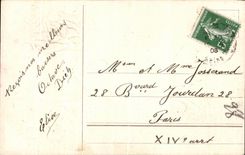 Recevez nos meilleurs
baisers
Octave
Elise
Mme et Mme Josserand
28 Bourd Jourdan 28
Paris
XIVe arrt
28